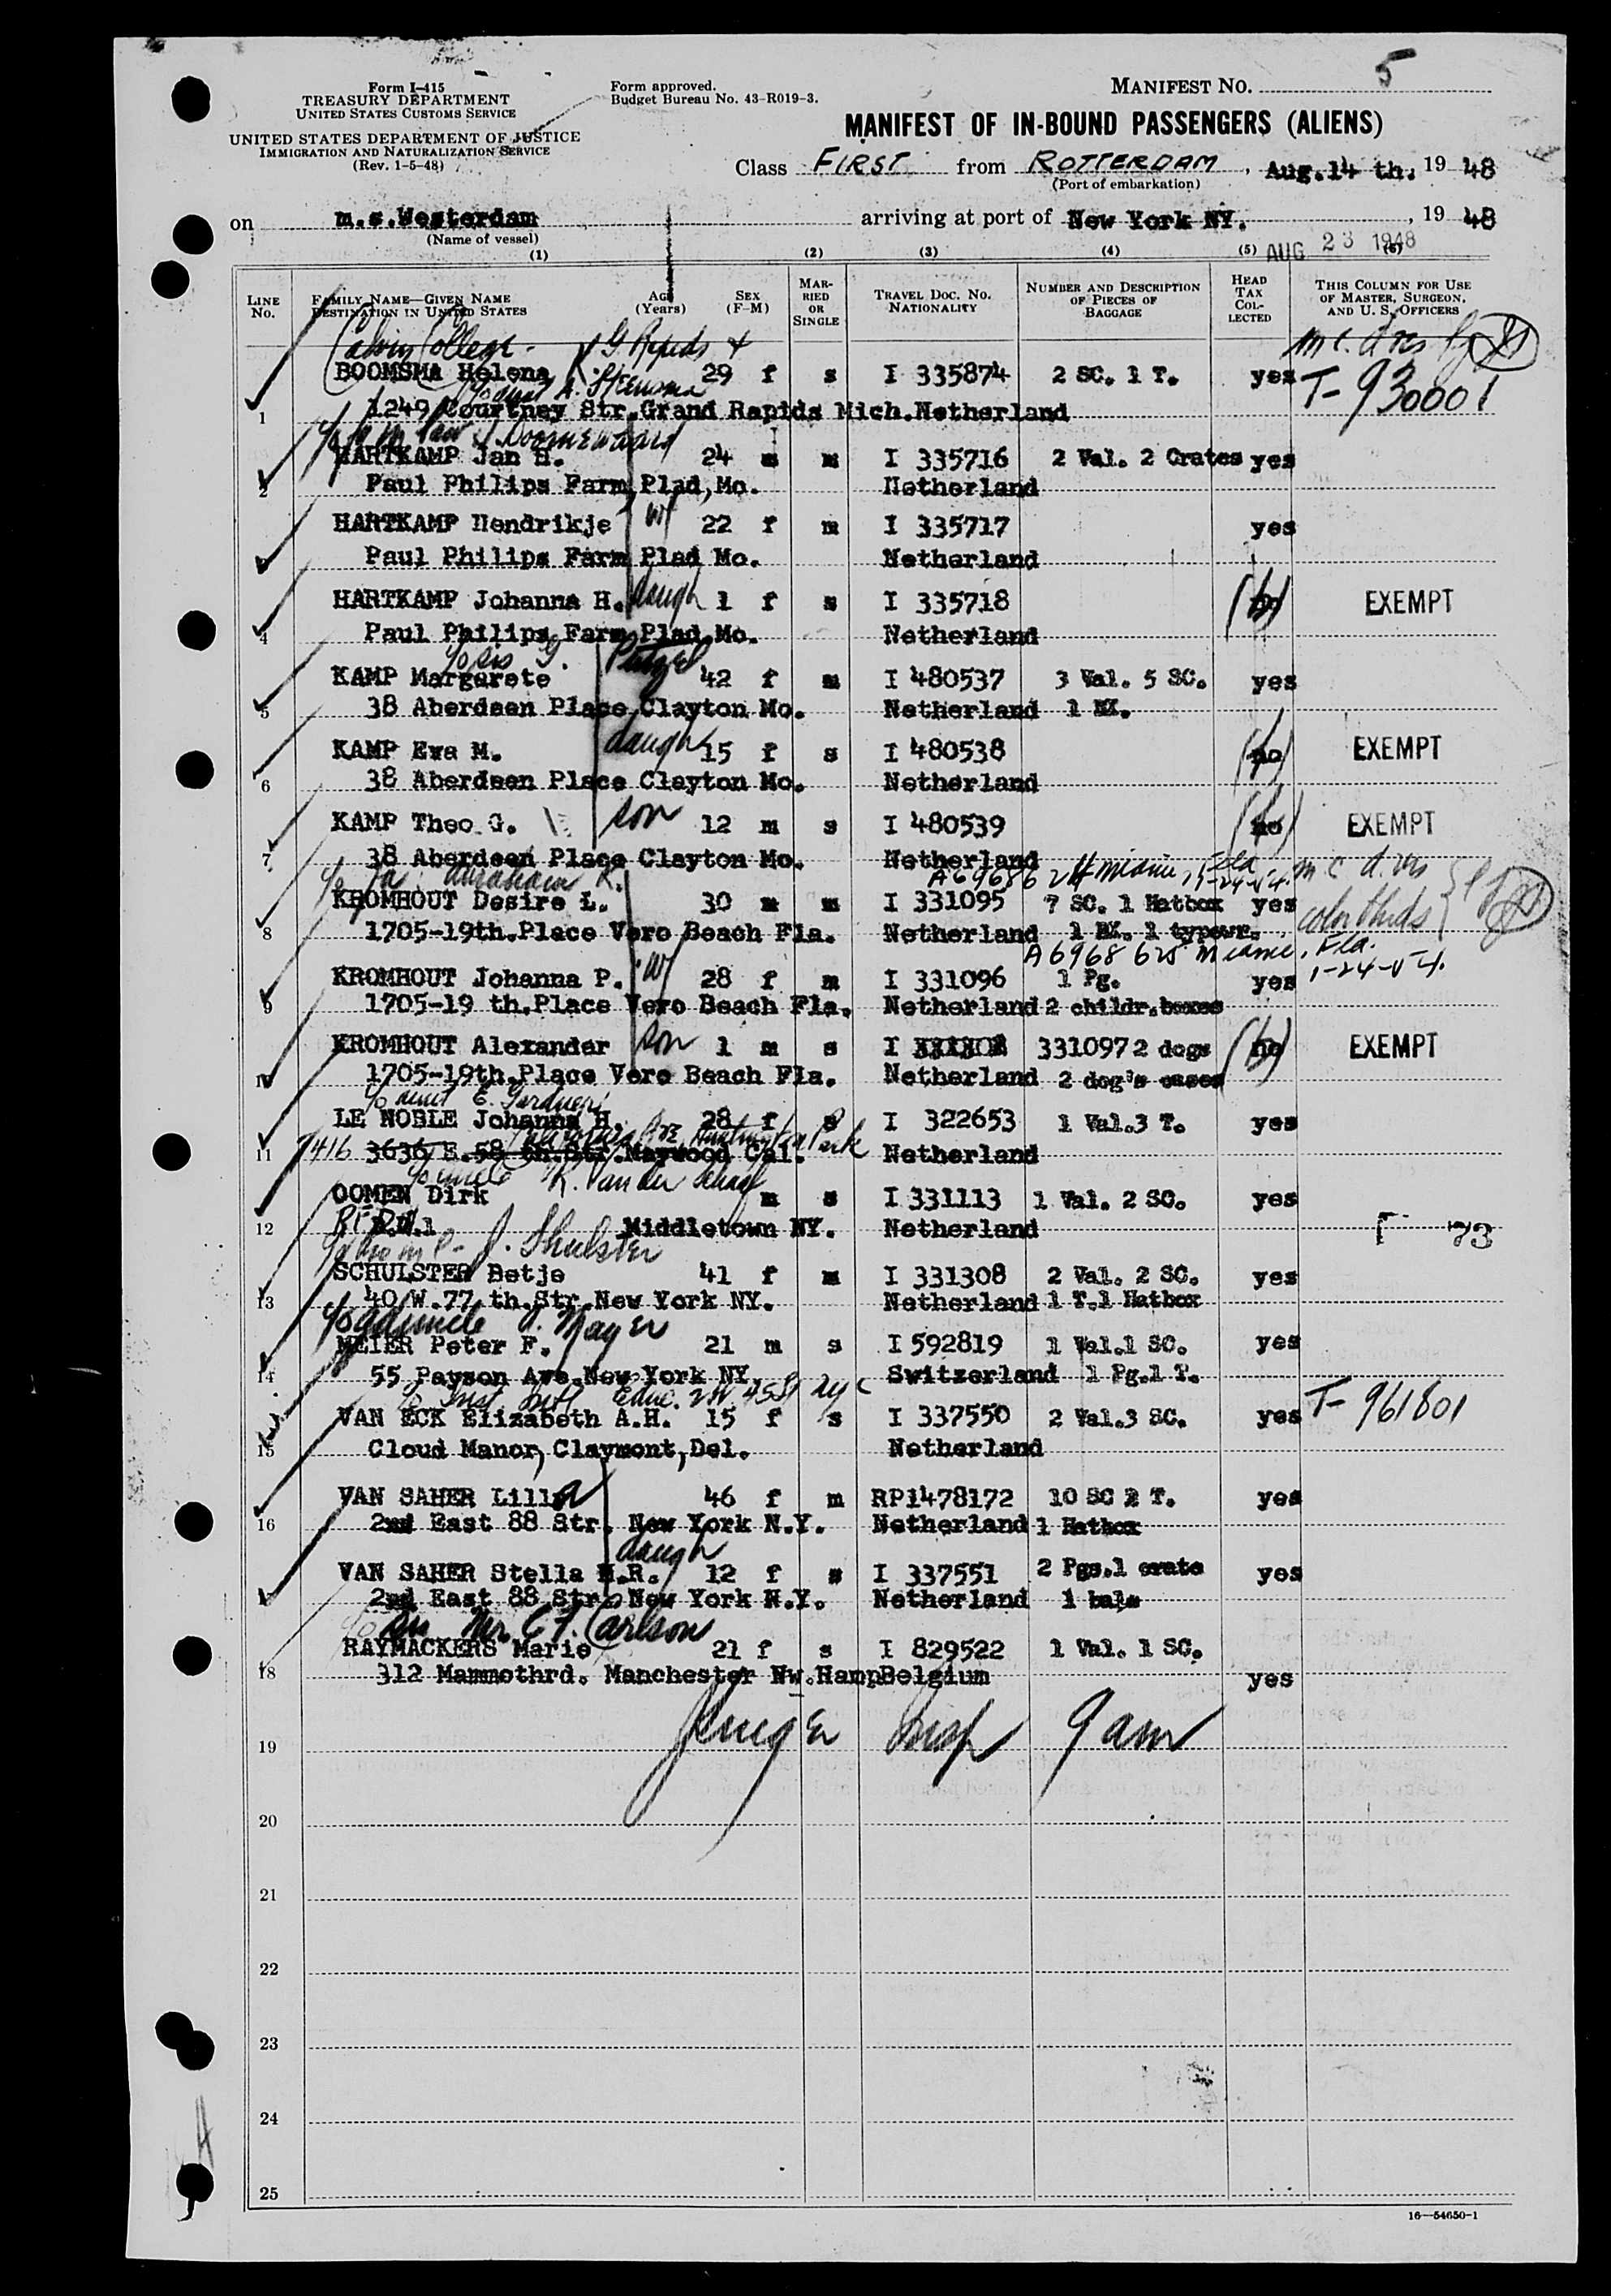 5
Form I-415
TREASURY DEPARTMENT
UNITED STATES CUSTOMS SERVICE
UNITED STATES DEPARTMENT OF JUSTICE
IMMIGRATION AND NATURALIZATION SERVICE
(Rev. 1-5-48)
Form approved.
Budget Bureau No. 43-R019-3.
MANIFEST NO.
MANIFEST OF IN-BOUND PASSENGERS (ALIENS)
Class FIRST from ROTTERDAM, Aug.14 th. 19 48
(Port of embarkation)
on m.s.Westerdam arriving at port of New York NY., 19 48
(Name of vessel)
AUG 23 1948
(1) (2) (3) (4) (5) (6)
LINE No. FAMILY NAME—GIVEN NAME DESTINATION IN UNITED STATES AGE (Years) SEX (F-M) MARRIED OR SINGLE TRAVEL DOC. NO. NATIONALITY NUMBER AND DESCRIPTION OF PIECES OF BAGGAGE HEAD TAX COLLECTED THIS COLUMN FOR USE OF MASTER, SURGEON, AND U. S. OFFICERS
Calvin College - G Rapids
BOOMSMA Helena 29 f s I 335874 2 SC. 1 T. yes T-930001
1 1249 Courtney Str.Grand Rapids Mich.Netherland
HARTKAMP Jan H. 24 m m I 335716 2 Val. 2 Crates yes
2 Paul Philips Farm,Plad,Mo. Netherland
HARTKAMP Hendrikje W 22 f m I 335717 yes
3 Paul Philips Farm Plad Mo. Netherland
HARTKAMP Johanna H. daugh 1 f s I 335718 EXEMPT
4 Paul Philips Farm Plad.Mo. Netherland
c/o sis G.
KAMP Margarete 42 f m I 480537 3 Val. 5 SC. yes
5 38 Aberdeen Place,Clayton Mo. Netherland 1 BX.
KAMP Eva M. daugh 15 f s I 480538 (no) EXEMPT
6 38 Aberdeen Place Clayton Mo. Netherland
KAMP Theo G. son 12 m s I 480539 (no) EXEMPT
7 38 Aberdeen Place Clayton Mo. Netherland
c/o fa: Abraham K.
KROMHOUT Desire L. 30 m m I 331095 7 SC. 1 Hatbox yes
8 1705-19th.Place Vero Beach Fla. Netherland 1 BX. 1 typewr.
A6968625 Miami, Fla.
1-24-54.
KROMHOUT Johanna P. W 28 f m I 331096 1 Pg. yes
9 1705-19 th.Place Vero Beach Fla. Netherland 2 childr.boxes
KROMHOUT Alexander son 1 m s I 331097 2 dogs (no) EXEMPT
10 1705-19th.Place Vero Beach Fla. Netherland 2 dog's cases
c/o aunt E. Gardner
LE NOBLE Johanna H. 28 f s I 322653 1 Val.3 T. yes
11 7416 3636 E.58 th.Str.Maywood Cal. Netherland
c/o uncle K. Van der Schaaf
OOMEN Dirk m s I 331113 1 Val. 2 SC. yes
12 Middletown NY. Netherland
J. Shulster
SCHULSTER Betje 41 f m I 331308 2 Val. 2 SC. yes
13 40 W.77 th.Str.New York NY. Netherland 1 T.1 Hatbox
A. Mayer
MEIER Peter F. 21 m s I 592819 1 Val.1 SC. yes
14 55 Payson Ave.New York NY. Switzerland 1 Pg.1 T.
c/o Inst. Intl Educ. 2 W. 45 St NYC
VAN ECK Elizabeth A.H. 15 f s I 337550 2 Val.3 SC. yes T-961801
15 Cloud Manor, Claymont,Del. Netherland
VAN SAHER Lilla 46 f m RP1478172 10 SC 2 T. yes
16 2nd East 88 Str. New York N.Y. Netherland 1 Hatbox
VAN SAHER Stella daugh 12 f s I 337551 2 Pgs.1 crate yes
2nd East 88 Str. New York N.Y. Netherland 1 bale
c/o sis Mr. C F. Carlson
RAYMACKERS Marie 21 f s I 829522 1 Val. 1 SC.
18 312 Mammothrd. Manchester Nw.Hamp Belgium yes
Insp 9 am
19
20
21
22
23
24
25
16—54650-1